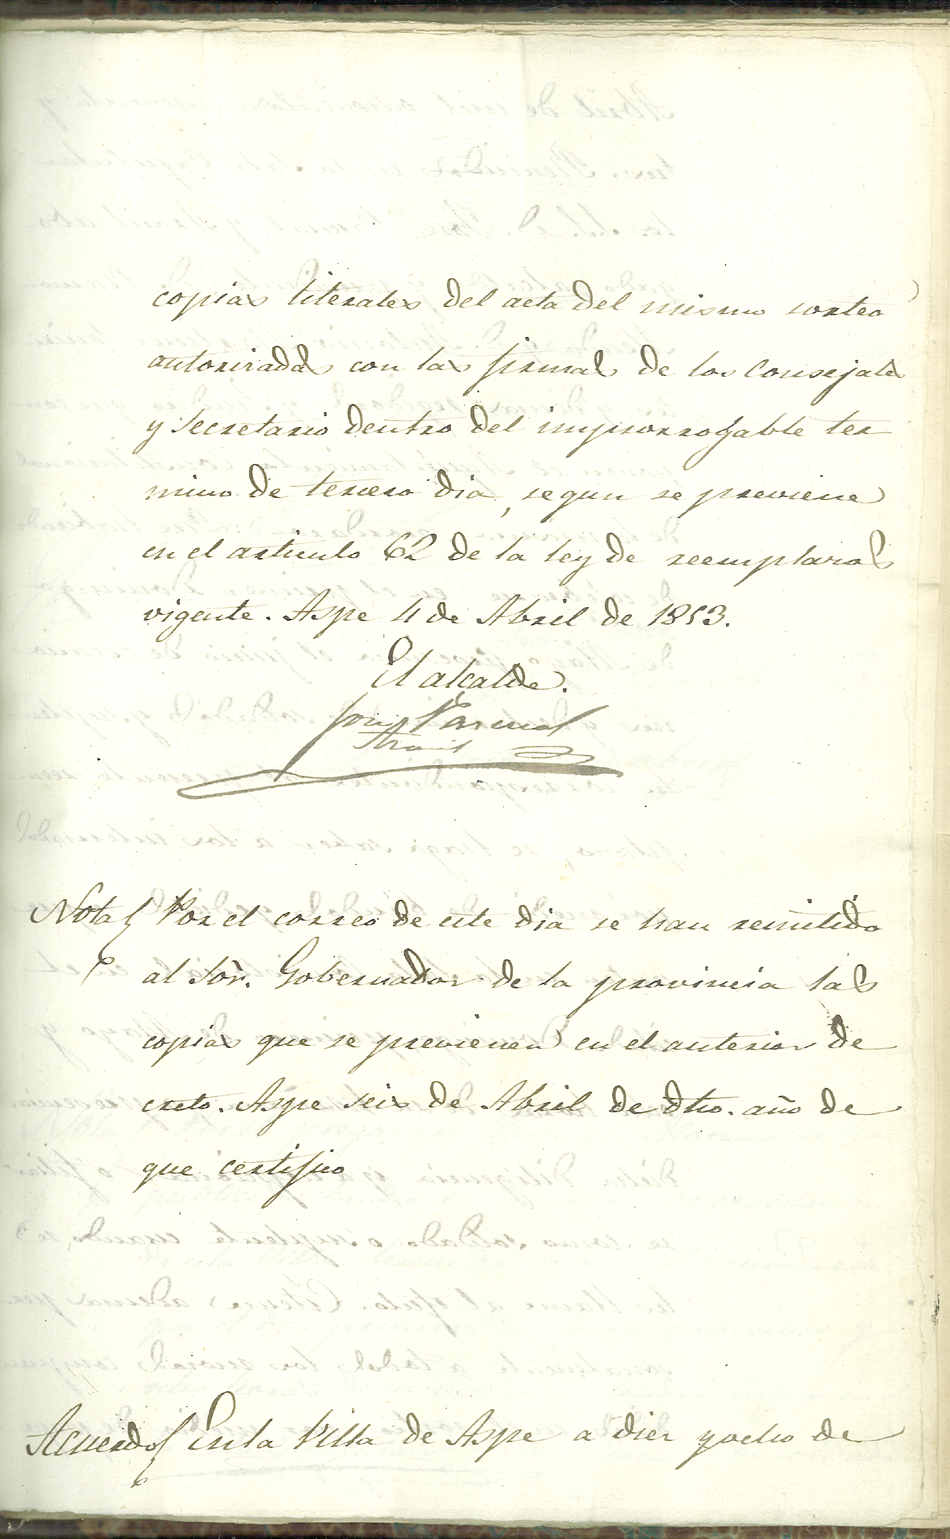 copias literales del acta del mismo sorteo
autorizadas con las firmas de los Consejales
y Secretario dentro del improrrogable ter
mino de tercero dia, segun se previene
en el articulo 62 de la ley de reemplazos
vigente. Aspe 4 de Abril de 1853.
El alcalde.
José Pascual
Nota Por el correo de este dia se han remitido
al Sōr. Gobernador de la provincia las
copias que se previenen en el anterior de
creto. Aspe seis de Abril de dho. año de
que certifico
Acuerdo En la Villa de Aspe a diez y ocho de